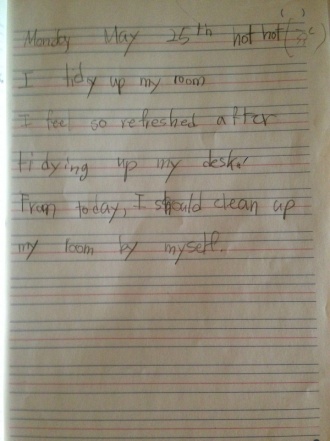 Monday May 25th hot hot
I tidy up my room
I feel so refreshed after
tidying up my desk.
From today, I should clean up
my room by myself.